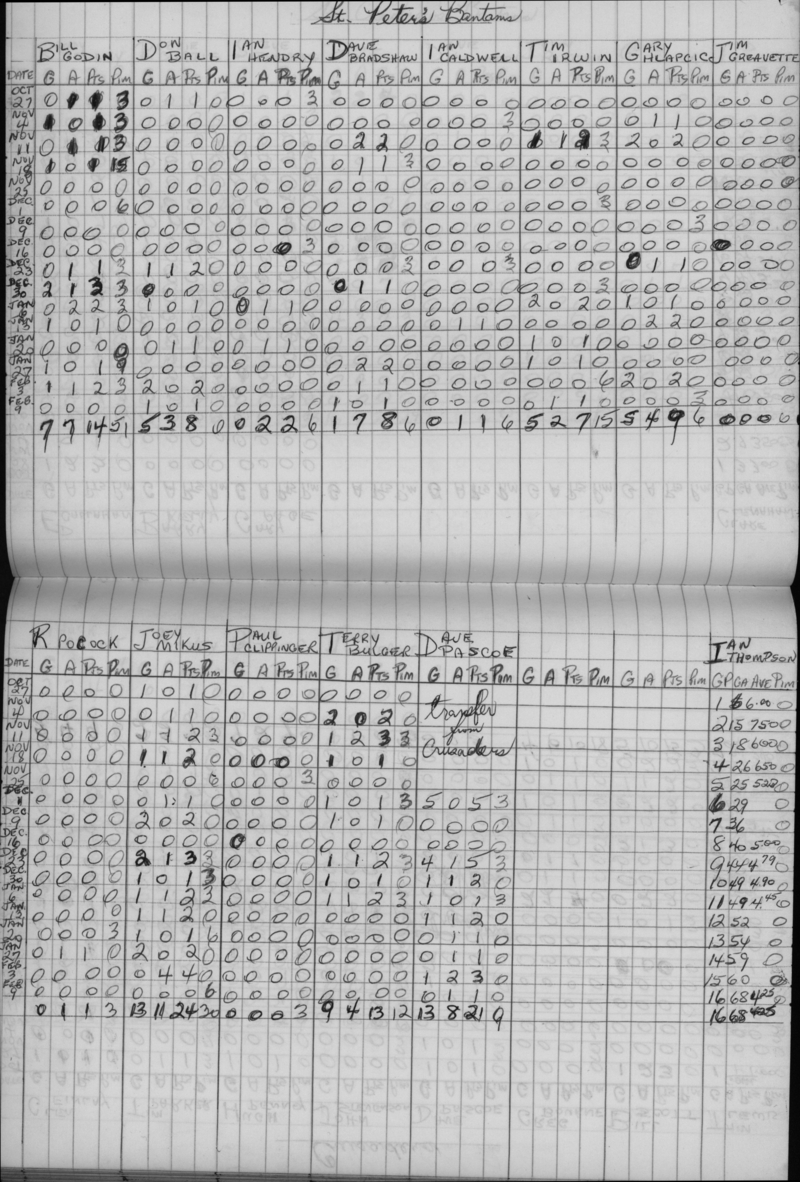 St. Peter's Bantams
BILL GODIN DON BALL IAN HENDRY DAVE BRADSHAW IAN CALDWELL TIM IRWIN GARY HLAPCIC JIM GREAVETTE
DATE G A Pts Pim G A Pts Pim G A Pts Pim G A Pts Pim G A Pts Pim G A Pts Pim G A Pts Pim G A Pts Pim
OCT 27 0 1 1 3 0 1 1 0 0 0 0 3 0 0 0 0 0 0 0 0 0 0 0 0 0 0 0 0 0 0 0 0
NOV 4 1 0 1 3 0 0 0 0 0 0 0 0 0 0 0 0 0 0 0 3 0 0 0 0 0 1 1 0 0 0 0 0
NOV 11 0 1 1 3 0 0 0 0 0 0 0 0 0 2 2 0 0 0 0 0 1 1 2 3 2 0 2 0 0 0 0 0
NOV 18 1 0 1 15 0 0 0 0 0 0 0 0 0 1 1 3 0 0 0 0 0 0 0 0 0 0 0 0 0 0 0 0
NOV 25 0 0 0 0 0 0 0 0 0 0 0 0 0 0 0 0 0 0 0 0 0 0 0 0 0 0 0 0 0 0 0 0
DEC 0 0 0 6 0 0 0 0 0 0 0 0 0 0 0 0 0 0 0 0 0 0 0 3 0 0 0 0 0 0 0 0
DEC 9 0 0 0 0 0 0 0 0 0 0 0 0 0 0 0 0 0 0 0 0 0 0 0 0 0 0 0 3 0 0 0 0
DEC 16 0 0 0 0 0 0 0 0 0 0 0 3 0 0 0 0 0 0 0 0 0 0 0 0 0 0 0 0 0 0 0 0
DEC 23 0 1 1 3 1 1 2 0 0 0 0 0 0 0 0 3 0 0 0 3 0 0 0 0 0 1 1 0 0 0 0 0
DEC 30 2 1 3 3 0 0 0 0 0 0 0 0 0 1 1 0 0 0 0 0 0 0 0 3 0 0 0 0 0 0 0 0
JAN 6 0 2 2 3 1 0 1 0 0 1 1 0 0 0 0 0 0 0 0 0 2 0 2 0 1 0 1 0 0 0 0 0
JAN 13 1 0 1 0 0 0 0 0 0 0 0 0 0 0 0 0 0 1 1 0 0 0 0 0 0 2 2 0 0 0 0 0
JAN 20 0 0 0 0 0 1 1 0 0 1 1 0 0 0 0 0 0 0 0 0 1 0 1 0 0 0 0 0 0 0 0 0
JAN 27 1 0 1 9 0 0 0 0 0 0 0 0 0 2 2 0 0 0 0 0 1 0 1 0 0 0 0 0 0 0 0 0
FEB 3 1 1 2 3 2 0 2 0 0 0 0 0 0 1 1 0 0 0 0 0 0 0 0 6 2 0 2 0 0 0 0 0
FEB. 9 0 0 0 0 1 0 1 0 0 0 0 0 1 0 1 0 0 0 0 0 0 1 1 0 0 0 0 3 0 0 0 0
7 7 14 51 5 3 8 0 0 2 2 6 1 7 8 6 0 1 1 6 5 2 7 15 5 4 9 6 0 0 0 0
R POCOCK JOEY MIKUS PAUL CLIPPINGER TERRY BULGER DAVE PASCOE IAN THOMPSON
DATE G A Pts Pim G A Pts Pim G A Pts Pim G A Pts Pim G A Pts Pim G A Pts Pim G A Pts Pim GP GA AVE Pim
OCT 27 0 0 0 0 1 0 1 0 0 0 0 0 0 0 0 0 1 6 6.00 0
NOV 4 0 0 0 0 0 1 1 0 0 0 0 0 2 0 2 0 transfer 2 15 7.50 0
NOV 11 0 0 0 0 1 1 2 3 0 0 0 0 1 2 3 3 from 3 18 6.00 0
NOV 18 0 0 0 0 1 1 2 0 0 0 0 0 1 0 1 0 Crusaders 4 26 6.50 0
NOV 25 0 0 0 0 0 0 0 0 0 0 0 3 0 0 0 0 5 25 5.22 0
DEC. 0 0 0 0 0 1 1 0 0 0 0 0 1 0 1 3 5 0 5 3 6 29 0
DEC 9 0 0 0 0 2 0 2 0 0 0 0 0 1 0 1 0 0 0 0 0 7 36 0
DEC. 16 0 0 0 0 0 0 0 0 0 0 0 0 0 0 0 0 0 0 0 0 8 40 5.00 0
DEC 23 0 0 0 0 2 1 3 3 0 0 0 0 1 1 2 3 4 1 5 3 9 44 4.79 0
DEC 30 0 0 0 0 1 0 1 3 0 0 0 0 1 0 1 0 1 1 2 0 10 49 4.90 0
JAN 6 0 0 0 0 1 1 2 3 0 0 0 0 1 1 2 3 1 0 1 3 11 49 4.45 0
JAN 13 0 0 0 0 1 1 2 0 0 0 0 0 0 0 0 0 1 1 2 0 12 52 0
JAN 20 0 0 0 3 1 0 1 6 0 0 0 0 0 0 0 0 0 1 1 0 13 54 0
JAN 27 0 1 1 0 2 0 2 0 0 0 0 0 0 0 0 0 0 1 1 0 14 59 0
FEB 3 0 0 0 0 0 4 4 0 0 0 0 0 0 0 0 0 1 2 3 0 15 60 0
FEB 9 0 0 0 0 0 0 0 6 0 0 0 0 0 0 0 0 0 1 1 0 16 68 4.25 0
0 1 1 3 13 11 24 30 0 0 0 3 9 4 13 12 13 8 21 9 16 68 4.25